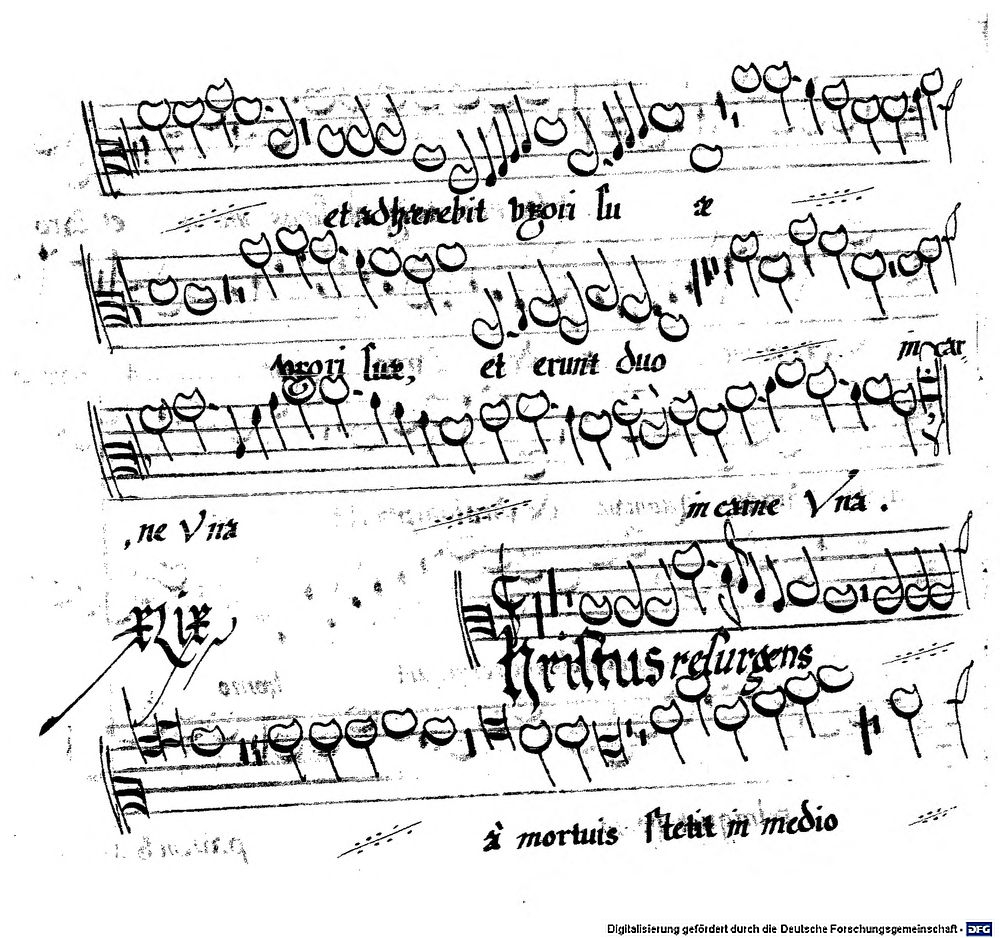 et adhærebit vxori su æ
vxori suæ, et erunt duo in car
, ne Vna in carne Vna .
xlix
Christus resurgens
à mortuis stetit in medio
Digitalisierung gefördert durch die Deutsche Forschungsgemeinschaft - DFG